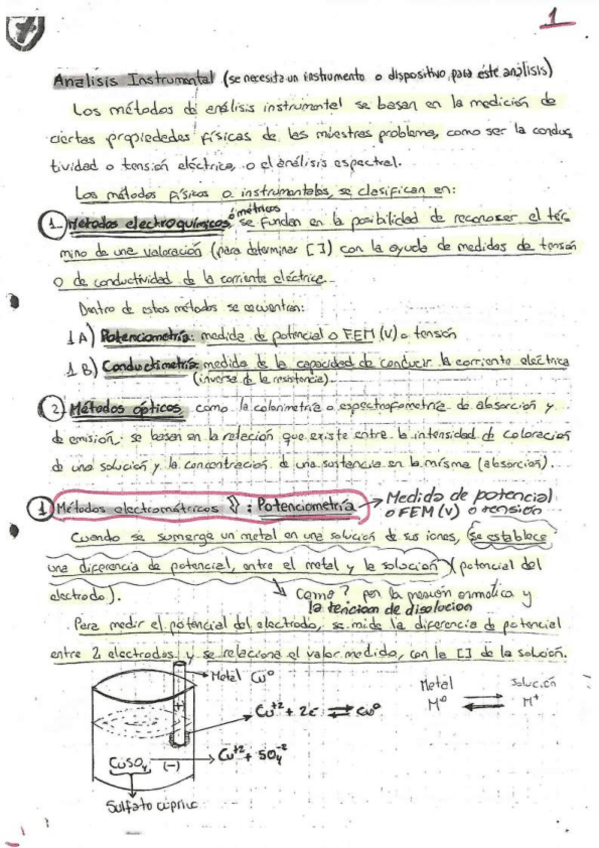 1
Analisis Instrumental (se necesita un instrumento o dispositivo para éste análisis)
Los métodos de análisis instrumental se basan en la medición de
ciertas propiedades físicas de las muestras problema, como ser la conduc
tividad o tensión eléctrica, o el análisis espectral.
Los métodos físicos o instrumentales, se clasifican en:
1 Métodos electroquímicos ó métricos se fundan en la posibilidad de reconocer el tér
mino de una valoración (para determinar [ ]) con la ayuda de medidas de tensión
o de conductividad de la corriente eléctrica.
Dentro de estos métodos se encuentran:
1A) Potenciometría: medida de potencial o FEM (V) o tensión
1B) Conductimetría medida de la capacidad de conducir la corriente eléctrica
(inversa de la resistencia).
2 Métodos ópticos como la colorimetría o espectrofometría de absorción y
de emisión: se basan en la relación que existe entre la intensidad de coloración
de una solución y la concentración de una sustancia en la misma (absorción).
1 Métodos electrométricos : Potenciometría → Medida de potencial
o FEM (V) o tensión
Cuando se sumerge un metal en una solución de sus iones, (se establece
una diferencia de potencial, entre el metal y la solución) (potencial del
electrodo).
Como? por la presión osmotica y
la tencion de disolucion
Para medir el potencial del electrodo, se mide la diferencia de potencial
entre 2 electrodos y se relaciona el valor medido, con la [ ] de la solución.
Metal Cu⁰
Metal Solución
M⁰ ⇌ M⁺
Cu⁺² + 2e ⇌ Cu⁰
CuSO₄ (-) → Cu⁺² + SO₄⁻²
Sulfato cúprico